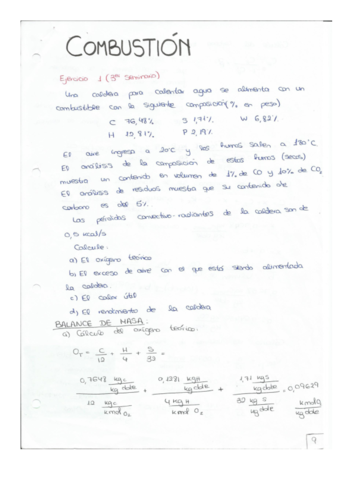 COMBUSTIÓN
Ejercicio 1 (3er Seminario)
Una caldera para calentar agua se alimenta con un
combustible con la siguiente composición (% en peso)
C 76,48% S 1,71% W 6,82%
H 12,81% P 2,19%
El aire ingresa a 20ºC y los humos salen a 180ºC
El análisis de la composición de estos humos (secos)
muestra un contenido en volumen de 1% de CO y 10% de CO2
El análisis de residuos muestra que su contenido de
carbono es del 5%.
Las pérdidas convectivo-radiantes de la caldera son de
0,5 kcal/s
Calcular:
a) El oxígeno teórico
b) El exceso de aire con el que está siendo alimentada
la caldera.
c) El calor útil
d) El rendimiento de la caldera
BALANCE DE MASA:
a) Cálculo del oxígeno teórico:
OT = C/12 + H/4 + S/32 =
0,7648 kgC/kg dote / 12 kgC/kmol O2 + 0,1281 kgH/kg dote / 4 kg H/kmol O2 + 1,71 kgS/kg dote / 32 kg S = 0,09629 kmol/kg dote
9